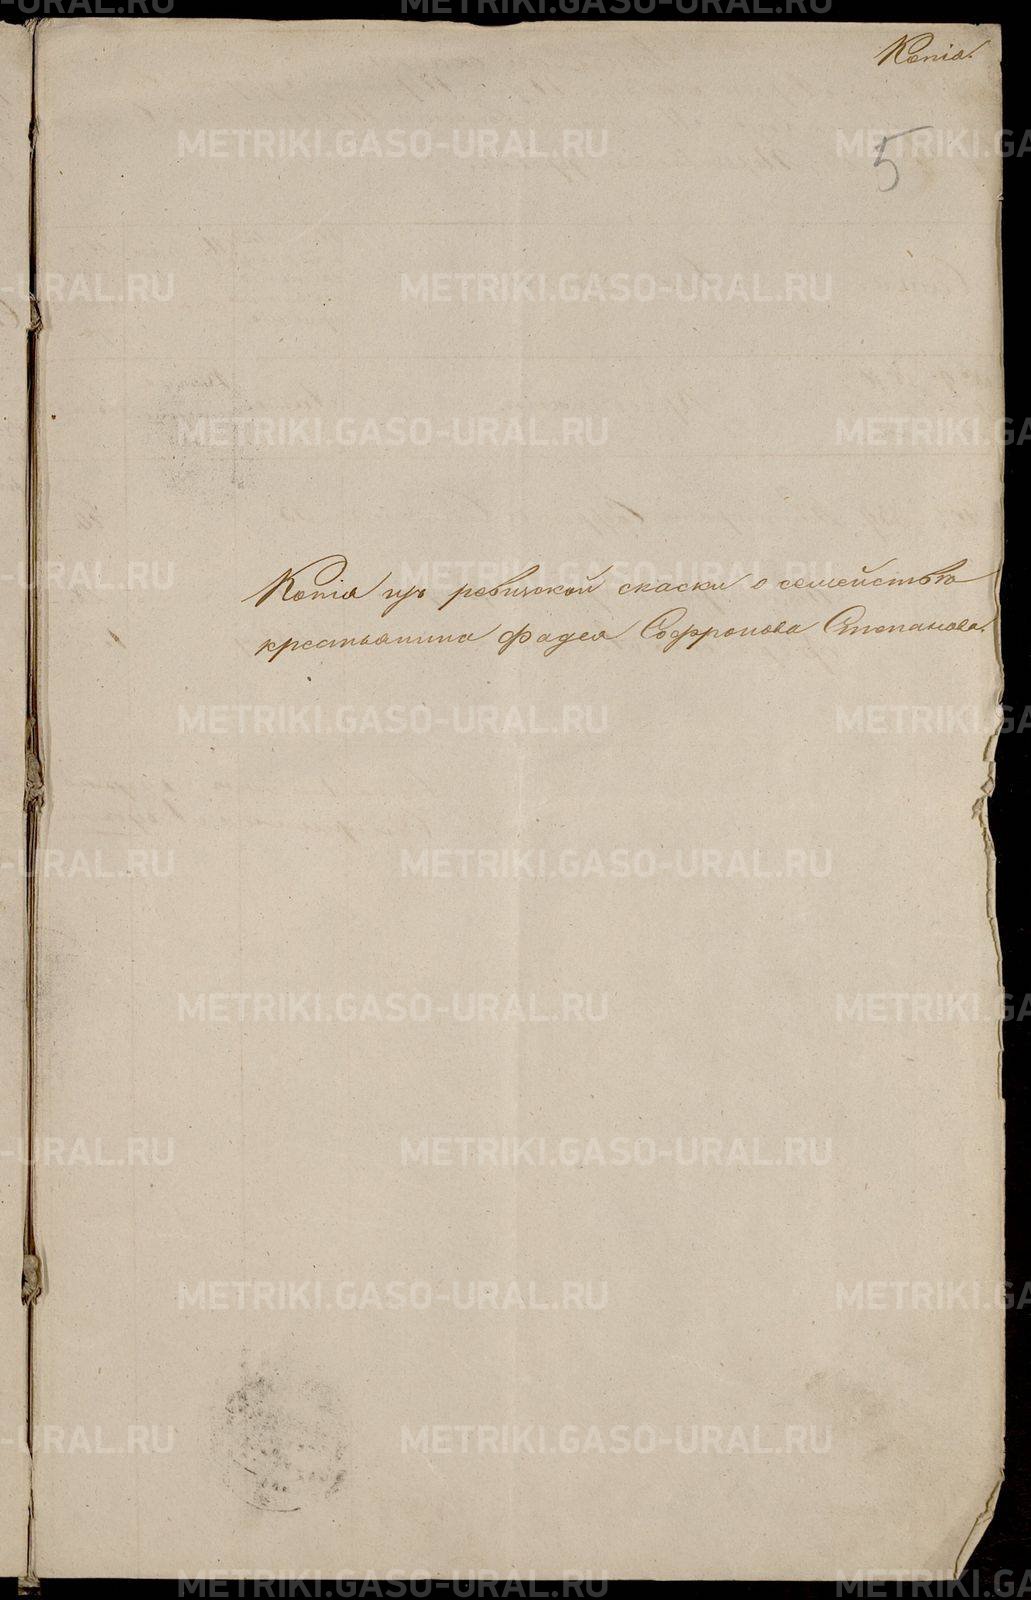 Копія.
5
Копія изъ ревизской скаски о семействѣ
крестьянина Фадея Софронова Степанова.
METRIKI.GASO-URAL.RU